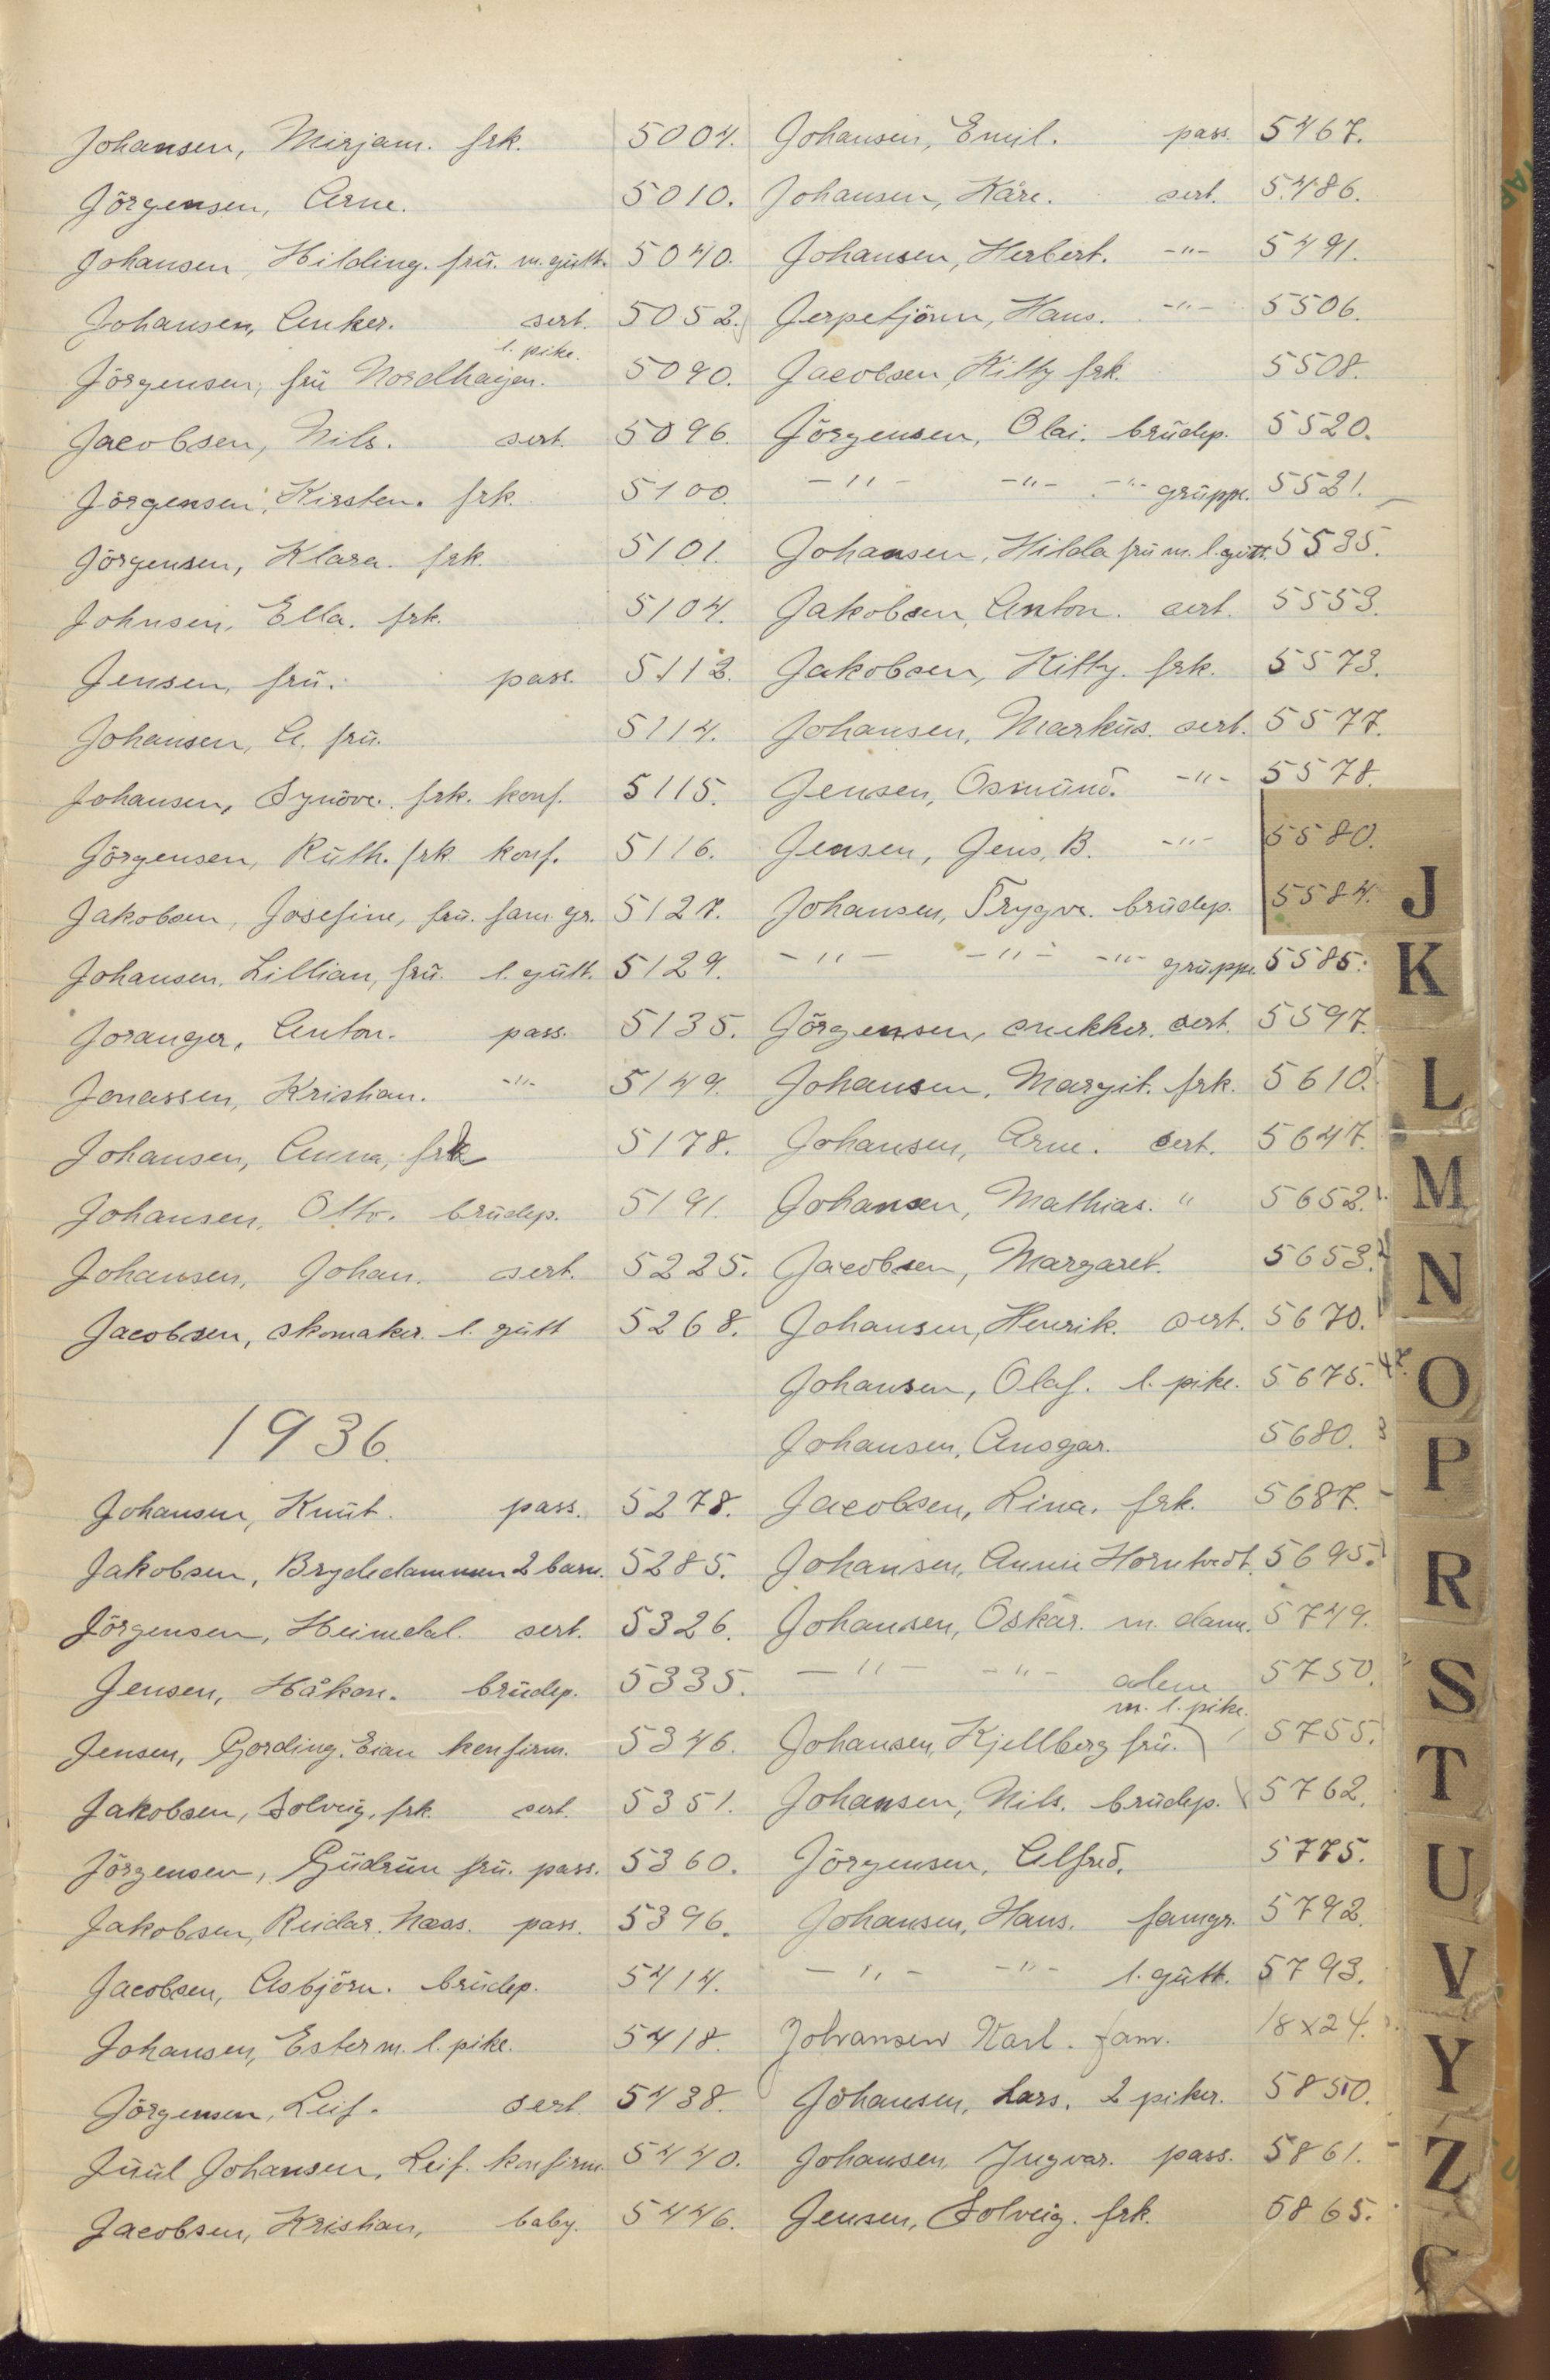 Johansen, Mirjam. frk. 5004.
Jörgensen, Arne. 5010.
Johansen, Hilding. frü. m. gütt. 5040.
Johansen, Anker. sert. 5052.
l. pike.
Jörgensen, frü Nordhagen. 5090.
Jacobsen, Nils. sert. 5096.
Jörgensen, Kirsten. frk. 5100.
Jörgensen, Klara. frk. 5101.
Johnsen, Ella. frk. 5104.
Jensen, frü. pass. 5112.
Johansen, A. frü. 5114.
Johansen, Synöve. frk. konf. 5115.
Jörgensen, Rüth. frk. konf. 5116.
Jakobsen, Josefine, frü. fam. gr. 5127.
Johansen, Lillian, frü. l. gütt. 5129.
Joranger, Anton. pass. 5135.
Jonassen, Kristian. -"- 5149.
Johansen, Anna, frk 5178.
Johansen, Otto. brüdep. 5191.
Johansen, Johan. sert. 5225.
Jacobsen, skomaker. l. gütt 5268.
1936.
Johansen, Knüt. pass. 5278.
Jakobsen, Brydedammen 2 barn. 5285.
Jörgensen, Heimdal. sert. 5326.
Jensen, Håkon. brüdep. 5335.
Jensen, Gording. Eian konfirm. 5346.
Jakobsen, Solveig, frk. sert. 5351.
Jörgensen, Güdrün frü. pass. 5360.
Jakobsen, Reidar. Næss. pass. 5396.
Jacobsen, Asbjörn. brüdep. 5414.
Johansen, Ester m. l. pike. 5418.
Jörgensen, Leif. sert. 5438.
Jüül Johansen, Leif. konfirm. 5440.
Jacobsen, Kristian, baby. 5446.
Johansen, Emil. pass. 5467.
Johansen, Kåre. sert. 5486.
Johansen, Herbert. -"- 5491.
Jerpetjönn, Hans. -"- 5506.
Jacobsen, Kitty frk. 5508.
Jörgensen, Olai. brüdep. 5520.
-"- -"- -"- grüppe. 5521.
Johansen, Hilda frü m. l. gütt. 5535.
Jakobsen, Anton. sert. 5553.
Jakobsen, Kitty. frk. 5573.
Johansen, Marküs. sert. 5577.
Jensen, Osmünd. -"- 5578.
Jensen, Jens, B. -"- 5580.
Johansen, Trygve. brüdep. 5584.
-"- -"- -"- grüppe. 5585.
Jörgensen, snekker. sert. 5597.
Johansen, Margit. frk. 5610.
Johansen, Arne. sert. 5647.
Johansen, Mathias. " 5652.
Jacobsen, Margaret. 5653.
Johansen, Henrik. sert. 5670.
Johansen, Olaf. l. pike. 5675.
Johansen, Ansgar. 5680.
Jacobsen, Lina. frk. 5687.
Johansen, Annie Horntvedt. 5695.
Johansen, Oskar. m. dame. 5749.
-"- -"- alene 5750.
m. l. pike.
Johansen, Kjellberg frü. 5755.
Johansen, Nils. brüdep. 5762.
Jörgensen, Alfred. 5775.
Johansen, Hans. famgr. 5792.
-"- -"- l. gütt. 5793.
Johansen Karl. fam. 18x24.
Johansen, Lars. 2 piker. 5850.
Johansen, Ingvar. pass. 5861.
Jensen, Solveig. frk. 5865.
J
K
L
M
N
O
P
R
S
T
U
V
Y
Z